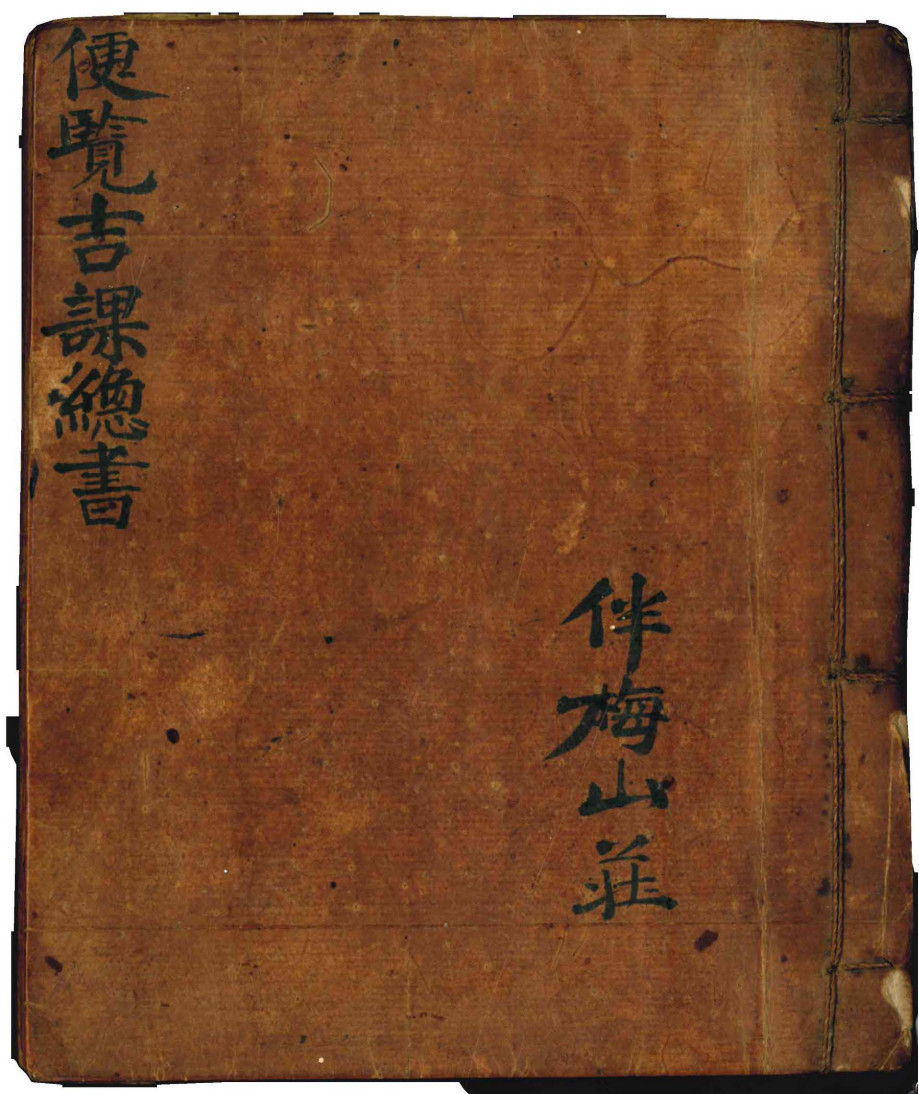 便覽吉課總書
伴梅山莊